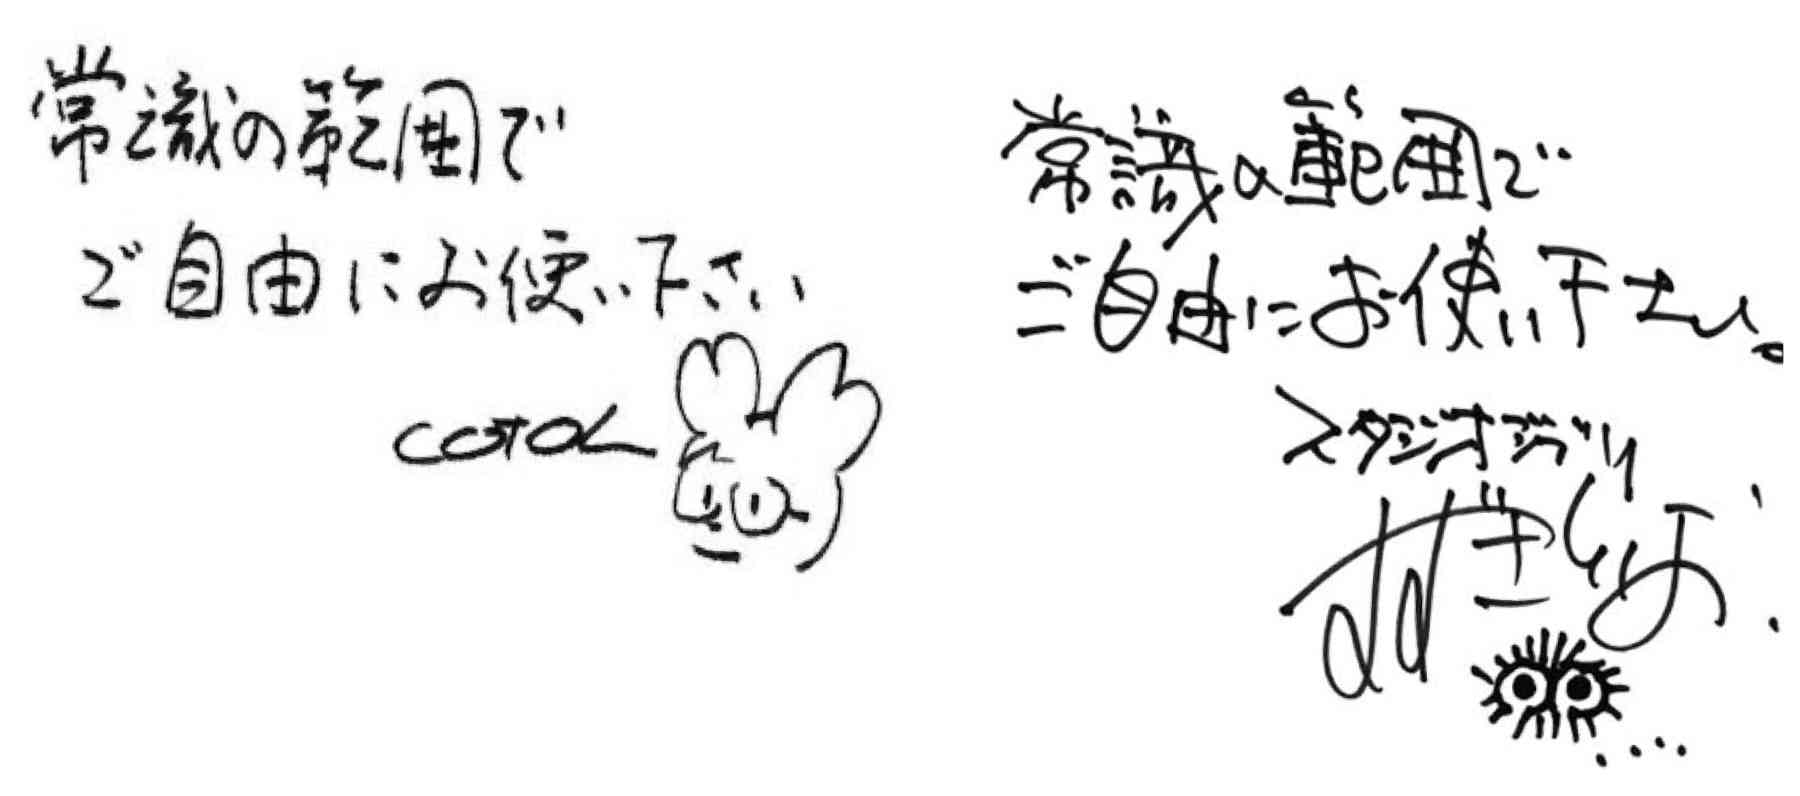 常識の範囲で
ご自由にお使い下さい
COTOL
常識の範囲で
ご自由にお使い下さい。
スタジオジブリ
すずきとしお